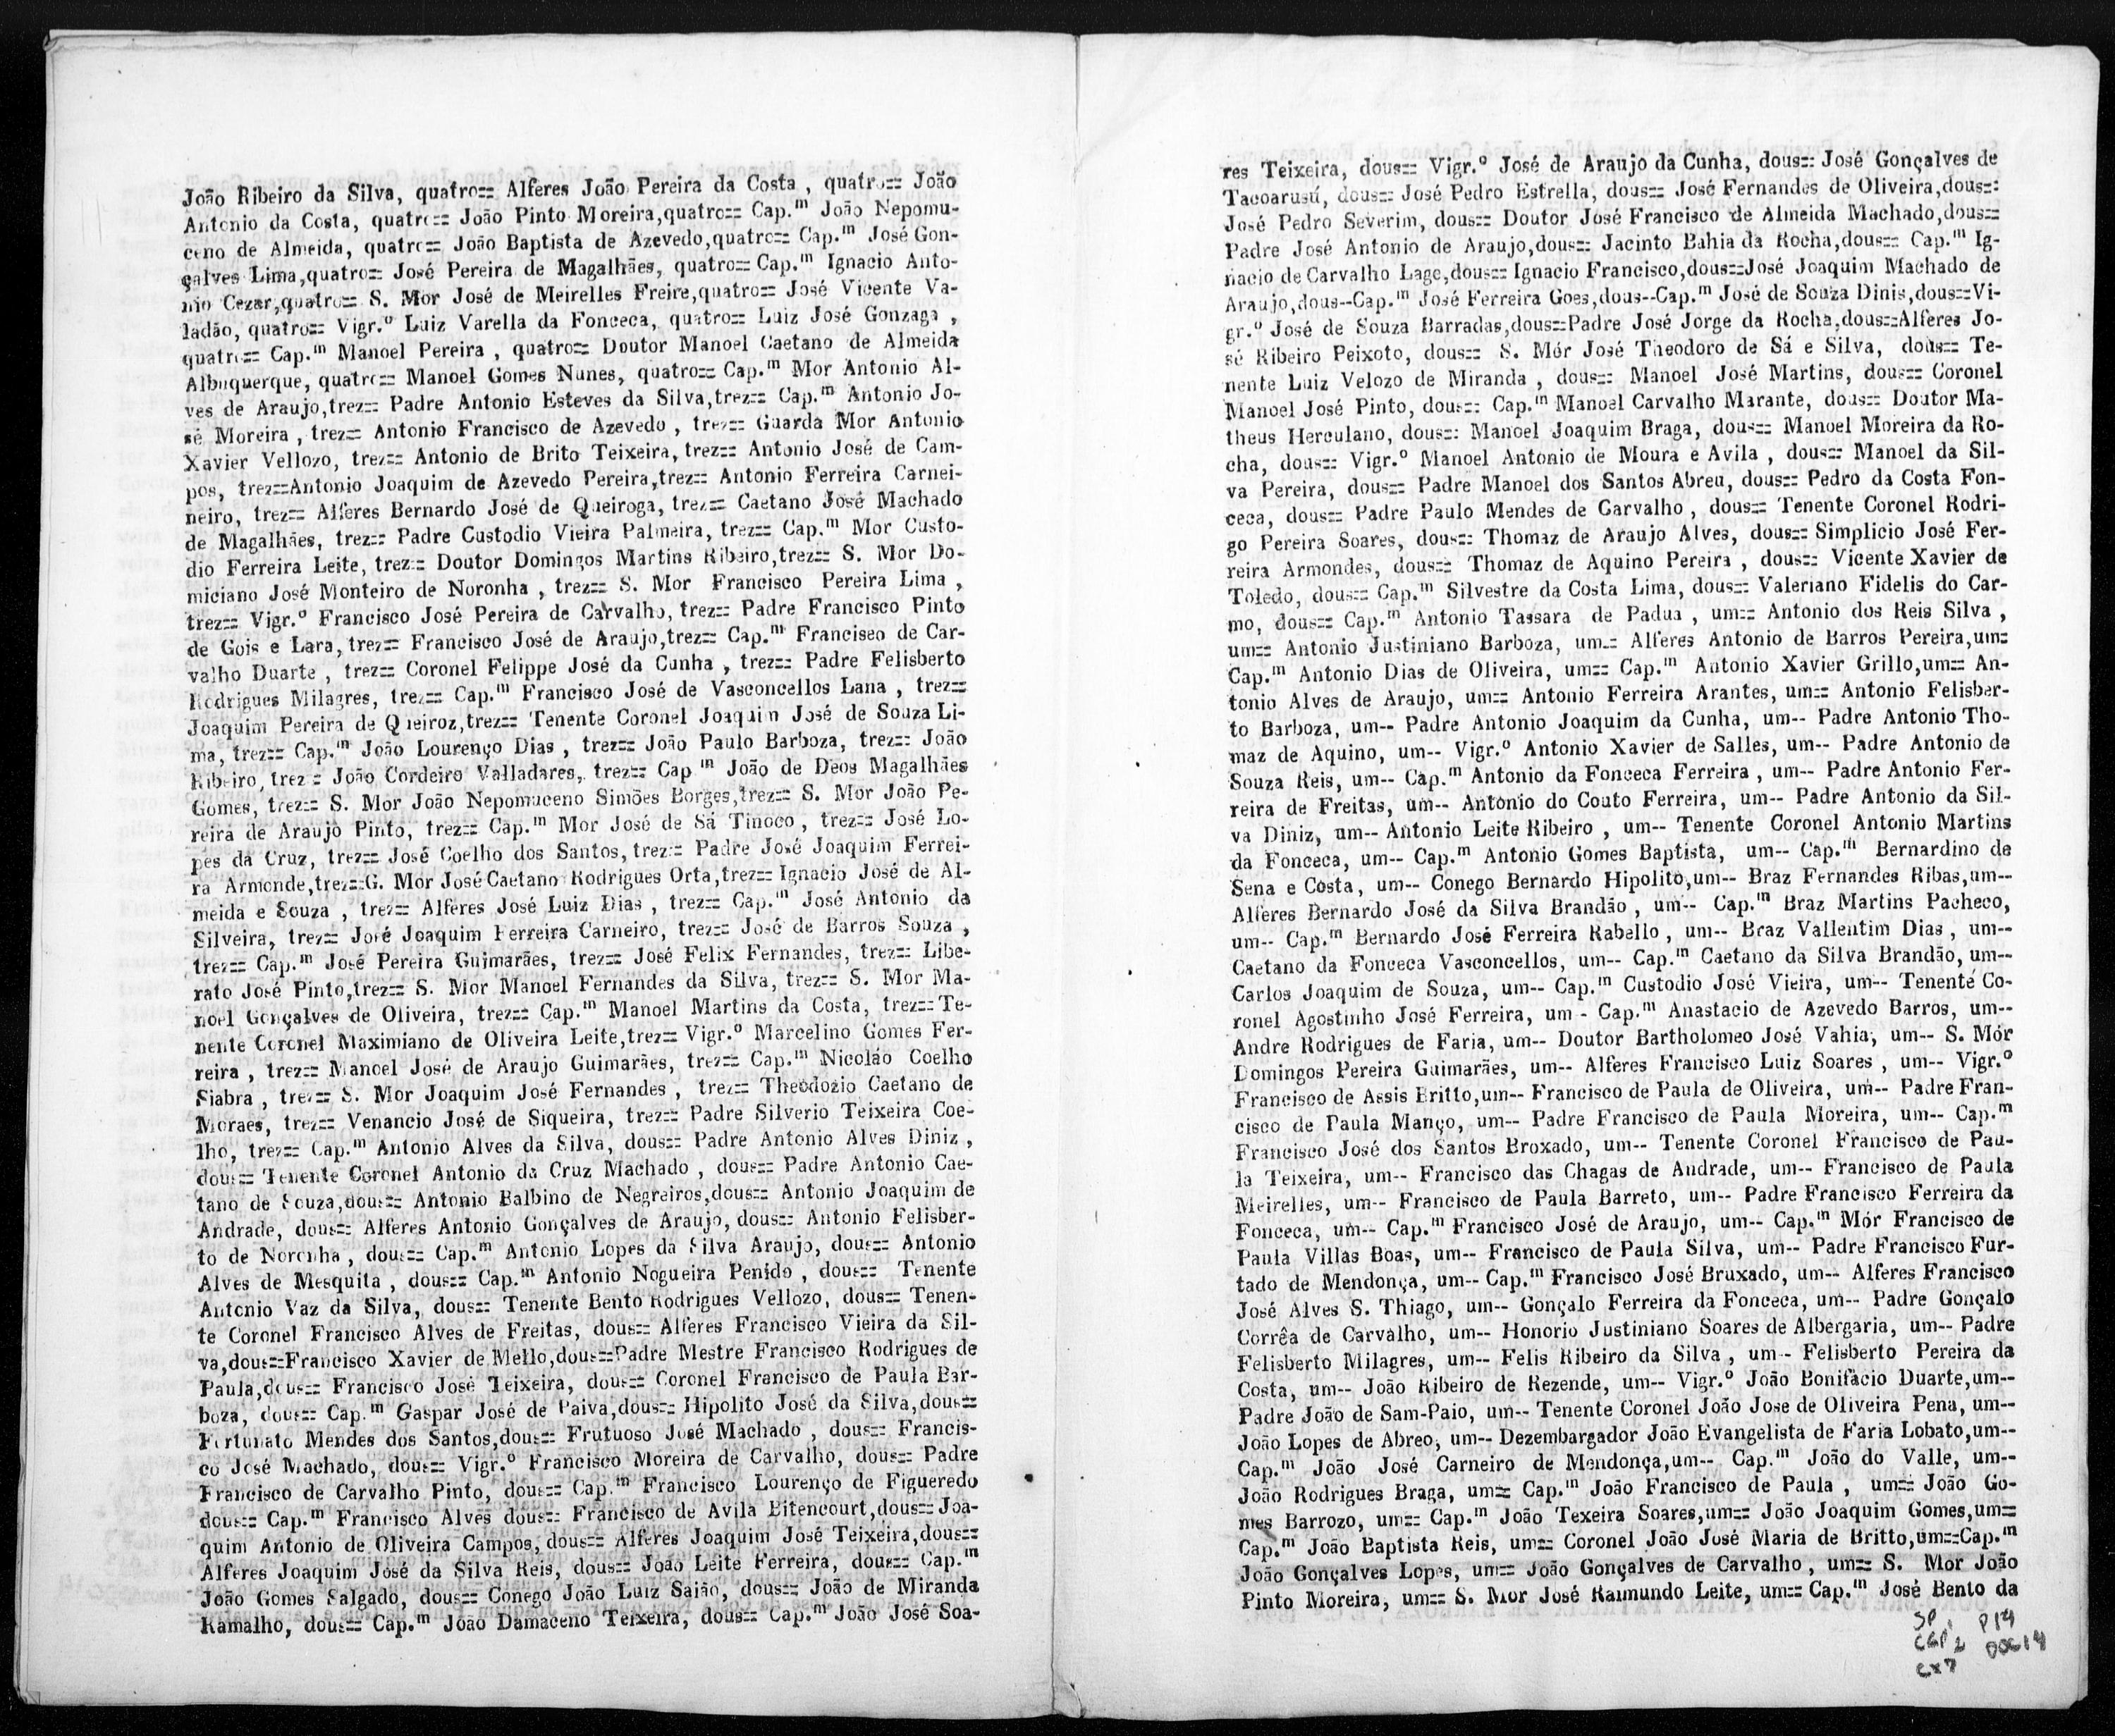 João Ribeiro da Silva, quatro== Alferes João Pereira da Costa , quatro== João
Antonio da Costa, quatro== João Pinto Moreira,quatro== Cap.m João Nepomu-
ceno de Almeida, quatro== João Baptista de Azevedo,quatro== Cap.m José Gon-
çalves Lima,quatro== José Pereira de Magalhães, quatro== Cap.m Ignacio Anto-
nio Cezar,quatro== S. Mor José de Meirelles Freire,quatro== José Vicente Va-
ladão, quatro== Vigr.o Luiz Varella da Fonceca, quatro== Luiz José Gonzaga ,
quatro== Cap.m Manoel Pereira , quatro== Doutor Manoel Caetano de Almeida
Albuquerque, quatro== Manoel Gomes Nunes, quatro== Cap.m Mor Antonio Al-
ves de Araujo,trez== Padre Antonio Esteves da Silva,trez== Cap.m Antonio Jo-
sé Moreira , trez== Antonio Francisco de Azevedo , trez== Guarda Mor Antonio
Xavier Vellozo, trez== Antonio de Brito Teixeira, trez== Antonio José de Cam-
pos, trez==Antonio Joaquim de Azevedo Pereira,trez== Antonio Ferreira Carnei-
neiro, trez== Alferes Bernardo José de Queiroga, trez== Caetano José Machado
de Magalhães, trez== Padre Custodio Vieira Palmeira, trez== Cap.m Mor Custo-
dio Ferreira Leite, trez== Doutor Domingos Martins Ribeiro,trez== S. Mor Do-
miciano José Monteiro de Noronha , trez== S. Mor Francisco Pereira Lima ,
trez== Vigr.o Francisco José Pereira de Carvalho, trez== Padre Francisco Pinto
de Gois e Lara, trez== Francisco José de Araujo,trez== Cap.m Francisco de Car-
valho Duarte , trez== Coronel Felippe José da Cunha , trez== Padre Felisberto
Rodrigues Milagres, trez== Cap.m Francisco José de Vasconcellos Lana , trez==
Joaquim Pereira de Queiroz,trez== Tenente Coronel Joaquim José de Souza Li-
ma, trez== Cap.m João Lourenço Dias , trez== João Paulo Barboza, trez== João
Ribeiro, trez = João Cordeiro Valladares, trez== Cap m João de Deos Magalhães
Gomes, trez== S. Mor João Nepomuceno Simões Borges,trez== S. Mor João Pe-
reira de Araujo Pinto, trez== Cap.m Mor José de Sá Tinoco , trez== José Lo-
pes da Cruz, trez== José Coelho dos Santos, trez== Padre José Joaquim Ferrei-
ra Armonde,trez==G. Mor José Caetano Rodrigues Orta,trez== Ignacio José de Al-
meida e Souza , trez== Alferes José Luiz Dias , trez== Cap.m José Antonio da
Silveira, trez== José Joaquim Ferreira Carneiro, trez== José de Barros Souza ,
trez== Cap.m José Pereira Guimarães, trez== José Felix Fernandes, trez== Libe-
rato José Pinto,trez== S. Mor Manoel Fernandes da Silva, trez== S. Mor Ma-
noel Gonçalves de Oliveira, trez== Cap.m Manoel Martins da Costa, trez== Te-
nente Coronel Maximiano de Oliveira Leite,trez== Vigr.o Marcelino Gomes Fer-
reira , trez== Manoel José de Araujo Guimarães, trez== Cap.m Nicoláo Coelho
Siabra , trez== S. Mor Joaquim José Fernandes , trez== Theodozio Caetano de
Moraes, trez== Venancio José de Siqueira, trez== Padre Silverio Teixeira Coe-
lho, trez== Cap.m Antonio Alves da Silva, dous== Padre Antonio Alves Diniz ,
dous== Tenente Coronel Antonio da Cruz Machado , dous== Padre Antonio Cae-
tano de Souza,dous== Antonio Balbino de Negreiros,dous== Antonio Joaquim de
Andrade, dous== Alferes Antonio Gonçalves de Araujo, dous== Antonio Felisber-
to de Noronha , dous== Cap.m Antonio Lopes da Silva Araujo, dous== Antonio
Alves de Mesquita , dous== Cap.m Antonio Nogueira Penido , dous== Tenente
Antonio Vaz da Silva, dous== Tenente Bento Rodrigues Vellozo, dous== Tenen-
te Coronel Francisco Alves de Freitas, dous== Alferes Francisco Vieira da Sil-
va,dous==Francisco Xavier de Mello,dous==Padre Mestre Francisco Rodrigues de
Paula,dous== Francisco José Teixeira, dous== Coronel Francisco de Paula Bar-
boza, dous== Cap.m Gaspar José de Paiva,dous== Hipolito José da Silva,dous==
Fortunato Mendes dos Santos,dous== Frutuoso José Machado , dous== Francis-
co José Machado, dous== Vigr.o Francisco Moreira de Carvalho, dous== Padre
Francisco de Carvalho Pinto, dous== Cap.m Francisco Lourenço de Figueredo
dous== Cap.m Francisco Alves dous== Francisco de Avila Bitencourt,dous== Joa-
quim Antonio de Oliveira Campos, dous== Alferes Joaquim José Teixeira,dous==
Alferes Joaquim José da Silva Reis, dous== João Leite Ferreira, dous== Cap.m
João Gomes Salgado, dous== Conego João Luiz Saião, dous== João de Miranda
Ramalho, dous== Cap.m João Damaceno Teixeira, dous== Cap.m João José Soa-
res Teixeira, dous== Vigr.o José de Araujo da Cunha, dous== José Gonçalves de
Tacoarusú, dous== José Pedro Estrella, dous== José Fernandes de Oliveira,dous==
José Pedro Severim, dous== Doutor José Francisco de Almeida Machado,dous==
Padre José Antonio de Araujo,dous== Jacinto Bahia da Rocha,dous== Cap.m Ig-
nacio de Carvalho Lage,dous== Ignacio Francisco,dous==José Joaquim Machado de
Araujo,dous--Cap.m José Ferreira Goes,dous--Cap.m José de Souza Dinis,dous==Vi-
gr.o José de Souza Barradas,dous==Padre José Jorge da Rocha,dous==Alferes Jo-
sé Ribeiro Peixoto, dous== S. Mór José Theodoro de Sá e Silva, dous== Te-
nente Luiz Velozo de Miranda , dous== Manoel José Martins, dous== Coronel
Manoel José Pinto, dous== Cap.m Manoel Carvalho Marante, dous== Doutor Ma-
theus Herculano, dous== Manoel Joaquim Braga, dous== Manoel Moreira da Ro-
cha, dous== Vigr.o Manoel Antonio de Moura e Avila , dous== Manoel da Sil-
va Pereira, dous== Padre Manoel dos Santos Abreu, dous== Pedro da Costa Fon-
ceca, dous== Padre Paulo Mendes de Carvalho , dous== Tenente Coronel Rodri-
go Pereira Soares, dous== Thomaz de Araujo Alves, dous== Simplicio José Fer-
reira Armondes, dous== Thomaz de Aquino Pereira , dous== Vicente Xavier de
Toledo, dous== Cap.m Silvestre da Costa Lima, dous== Valeriano Fidelis do Car-
mo, dous== Cap.m Antonio Tassara de Padua , um== Antonio dos Reis Silva ,
um== Antonio Justiniano Barboza, um== Alferes Antonio de Barros Pereira,um=
Cap.m Antonio Dias de Oliveira, um== Cap.m Antonio Xavier Grillo,um== An-
tonio Alves de Araujo, um== Antonio Ferreira Arantes, um== Antonio Felisber-
to Barboza, um-- Padre Antonio Joaquim da Cunha, um-- Padre Antonio Tho-
maz de Aquino, um-- Vigr.o Antonio Xavier de Salles, um-- Padre Antonio de
Souza Reis, um-- Cap.m Antonio da Fonceca Ferreira , um-- Padre Antonio Fer-
reira de Freitas, um-- Antonio do Couto Ferreira, um-- Padre Antonio da Sil-
va Diniz, um-- Antonio Leite Ribeiro , um-- Tenente Coronel Antonio Martins
da Fonceca, um-- Cap.m Antonio Gomes Baptista, um-- Cap.m Bernardino de
Sena e Costa, um-- Conego Bernardo Hipolito,um-- Braz Fernandes Ribas,um--
Alferes Bernardo José da Silva Brandão , um-- Cap.m Braz Martins Pacheco,
um-- Cap.m Bernardo José Ferreira Rabello , um-- Braz Vallentim Dias , um--
Caetano da Fonceca Vasconcellos, um-- Cap.m Caetano da Silva Brandão, um--
Carlos Joaquim de Souza, um-- Cap.m Custodio José Vieira, um-- Tenente Co-
ronel Agostinho José Ferreira, um - Cap.m Anastacio de Azevedo Barros, um--
Andre Rodrigues de Faria, um-- Doutor Bartholomeo José Vahia, um-- S. Mór
Domingos Pereira Guimarães, um-- Alferes Francisco Luiz Soares , um-- Vigr.o
Francisco de Assis Britto,um-- Francisco de Paula de Oliveira, um-- Padre Fran-
cisco de Paula Manço, um-- Padre Francisco de Paula Moreira, um-- Cap.m
Francisco José dos Santos Broxado, um-- Tenente Coronel Francisco de Pau-
la Teixeira, um-- Francisco das Chagas de Andrade, um-- Francisco de Paula
Meirelles, um-- Francisco de Paula Barreto, um-- Padre Francisco Ferreira da
Fonceca, um-- Cap.m Francisco José de Araujo, um-- Cap.m Mór Francisco de
Paula Villas Boas, um-- Francisco de Paula Silva, um-- Padre Francisco Fur-
tado de Mendonça, um-- Cap.m Francisco José Bruxado, um-- Alferes Francisco
José Alves S. Thiago, um-- Gonçalo Ferreira da Fonceca, um-- Padre Gonçalo
Corrêa de Carvalho, um-- Honorio Justiniano Soares de Albergaria, um-- Padre
Felisberto Milagres, um-- Felis Ribeiro da Silva , um-- Felisberto Pereira da
Costa, um-- João Ribeiro de Rezende, um-- Vigr.o João Bonifacio Duarte,um--
Padre João de Sam-Paio, um-- Tenente Coronel João Jose de Oliveira Pena, um--
João Lopes de Abreo, um-- Dezembargador João Evangelista de Faria Lobato,um--
Cap.m João José Carneiro de Mendonça,um-- Cap.m João do Valle, um--
João Rodrigues Braga, um== Cap.m João Francisco de Paula , um== João Go-
mes Barrozo, um== Cap.m João Texeira Soares,um== João Joaquim Gomes,um==
Cap.m João Baptista Reis, um== Coronel João José Maria de Britto,um==Cap.m
João Gonçalves Lopes, um== João Gonçalves de Carvalho , um== S. Mor João
Pinto Moreira, um== S. Mor José Raimundo Leite, um== Cap.m José Bento da
SP. P14
CGP2 DOC14
CX7